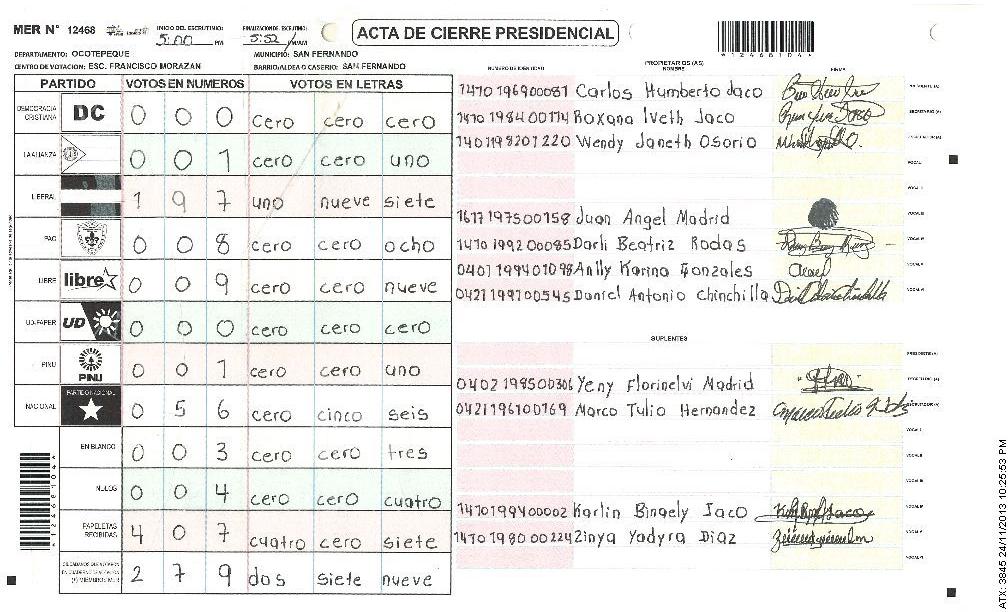 MER N° 12468 INICIO DEL ESCRUTINIO: 5:00 PM FINALIZACION DEL ESCRUTINIO: 5:52 ACTA DE CIERRE PRESIDENCIAL
*12468104*
DEPARTAMENTO: OCOTEPEQUE MUNICIPIO: SAN FERNANDO
CENTRO DE VOTACION: ESC. FRANCISCO MORAZAN BARRIO/ALDEA O CASERIO: SAN FERNANDO
PARTIDO VOTOS EN NUMEROS VOTOS EN LETRAS
DEMOCRACIA CRISTIANA DC 0 0 0 cero cero cero
LA ALIANZA 0 0 1 cero cero uno
LIBERAL 1 9 7 uno nueve siete
PAC 0 0 8 cero cero ocho
LIBRE libre 0 0 9 cero cero nueve
UD-FAPER UD 0 0 0 cero cero cero
PINU PINU 0 0 1 cero cero uno
NACIONAL PARTIDO NACIONAL 0 5 6 cero cinco seis
EN BLANCO 0 0 3 cero cero tres
NULOS 0 0 4 cero cero cuatro
PAPELETAS RECIBIDAS 4 0 7 cuatro cero siete
CIUDADANOS QUE VOTARON
2 7 9 dos siete nueve
NUMERO DE IDENTIDAD PROPIETARIOS (AS) NOMBRE FIRMA
1410196900081 Carlos Humberto Jaco
1410198400174 Roxana Iveth Jaco
1401198201220 Wendy Janeth Osorio
1617197500158 Juan Angel Madrid
1410199200085 Darli Beatriz Rodas
0401199401098 Anlly Karina Gonzales
0421199100545 Daniel Antonio Chinchilla
SUPLENTES
0402198500306 Yeny Florinelvi Madrid
0421196100169 Marco Tulio Hernandez
1410199400002 Karlin Bingely Jaco
1410198000224 Zinya Yadyra Diaz
ATX: 3845 24/11/2013 10:25:53 PM